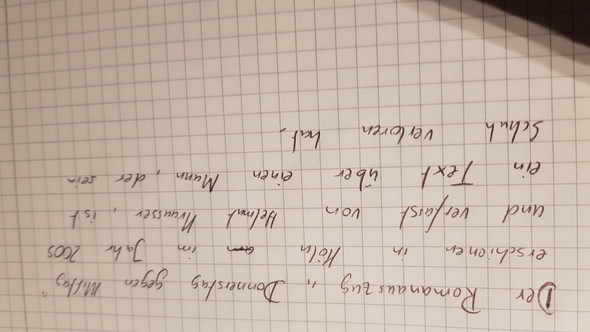 Der Romanauszug „Donnerstag gegen Mittag"
erschienen in Köln im Jahr 2005
und verfasst von Helmut Krausser, ist
ein Text über einen Mann, der sein
Schuh verloren hat.